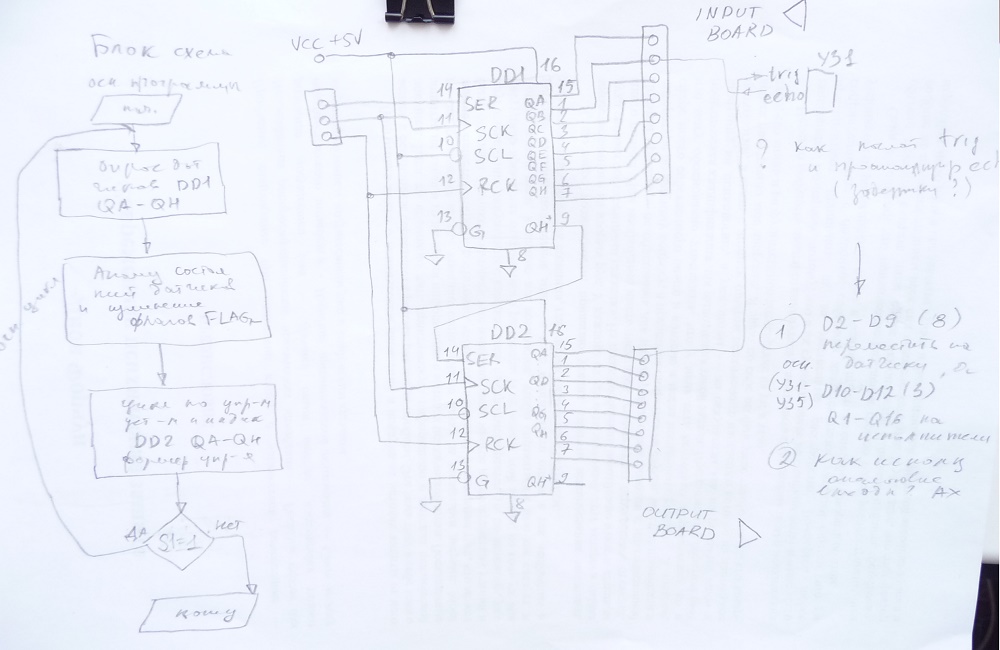 Блок схема
осн программы
нач.
Опрос дат
чиков DD1
QA-QH
Анализ состоя
ний датчиков
и изменение
флагов FLAGx
цикл по упр-ю
DD2 QA-QH
S1=1
Да
нет
осн цикл
VCC +5V
DD1
16
14
SER
11
SCK
10
SCL
12
RCK
13
G
8
QA
15
QB
1
QC
2
QD
3
QE
4
QF
5
QG
6
QH
7
QH'
9
DD2
16
14
SER
11
SCK
10
SCL
12
RCK
13
G
8
QA
15
1
QD
2
3
QG
4
QH
5
6
7
QH'
9
INPUT
BOARD
OUTPUT
BOARD
УЗ1
trig
echo
? Как
trig
и
(задержки?)
1 D2-D9 (8)
переместить на
датчики,
осн
(УЗ1-
УЗ5) D10-D12 (3)
Q1-Q16 на
исполнители
2 Как использ
аналоговые
входы? AX